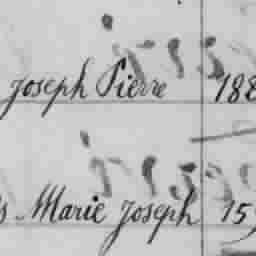 Joseph Pierre 188
s Marie Joseph 15